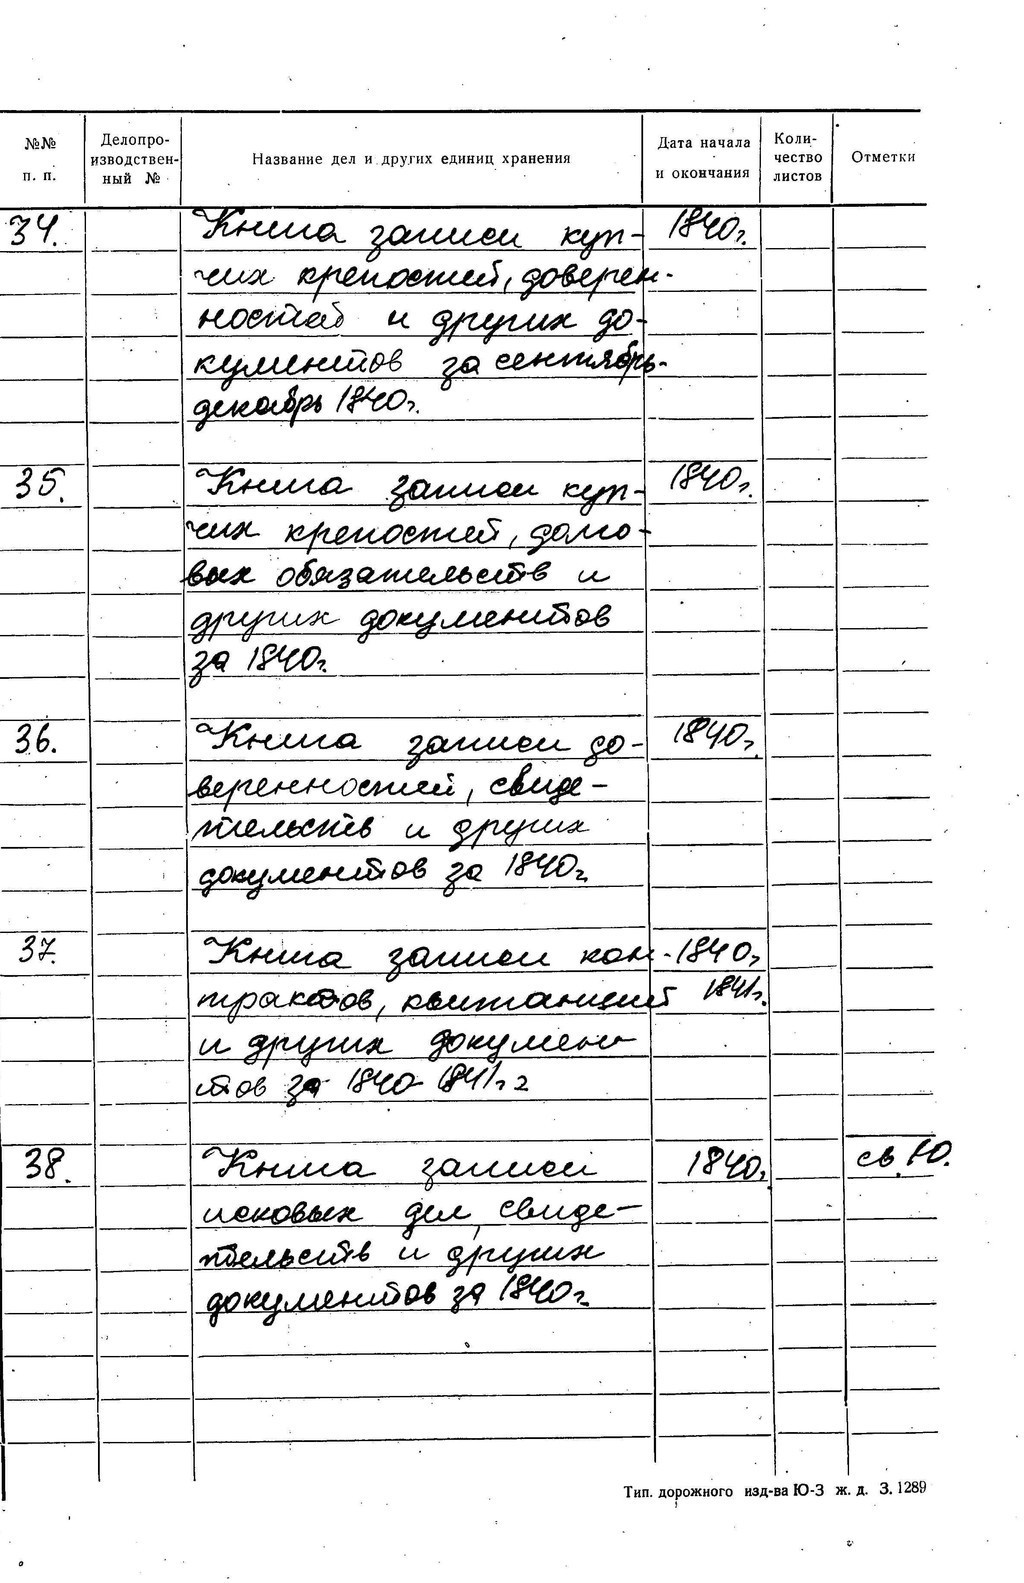 №№ п. п.
Делопроизводственный №
Название дел и других единиц хранения
Дата начала и окончания
Количество листов
Отметки
34. Книга записи куп- 1840г.
чих крепостей, доверен-
ностей и других до-
кументов за сентябрь-
декабрь 1840г.
35. Книга записи куп- 1840г.
чих крепостей, домо-
вых обязательств и
других документов
за 1840г.
36. Книга записи до- 1840г.
веренностей, свиде-
тельств и других
документов за 1840г.
37. Книга записи кон- 1840г
трактов, квитанций 1841г.
и других докумен-
тов за 1840-1841г.г
38. Книга записи 1840г. св. 10.
исковых дел, свиде-
тельств и других
документов за 1840г.
Тип. дорожного изд-ва Ю-З ж. д. З. 1289